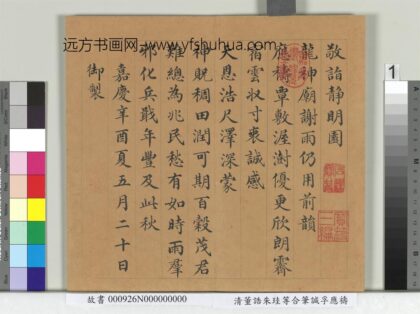 远方书画网 www.yfshuhua.com
敬詣静明園
龍神廟謝雨仍用前韻
應禱覃敷渥澍優更欣朗霽
宿雲収寸衷誠感
天恩浩尺澤深蒙
神貺稠田潤可期百穀茂君
難總為兆民愁有如時雨羣
邪化兵戢年豐及此秋
嘉慶辛酉夏五月二十日
御製
1
故書 000926N000000000
清董誥朱珪等合筆誠孚應禱